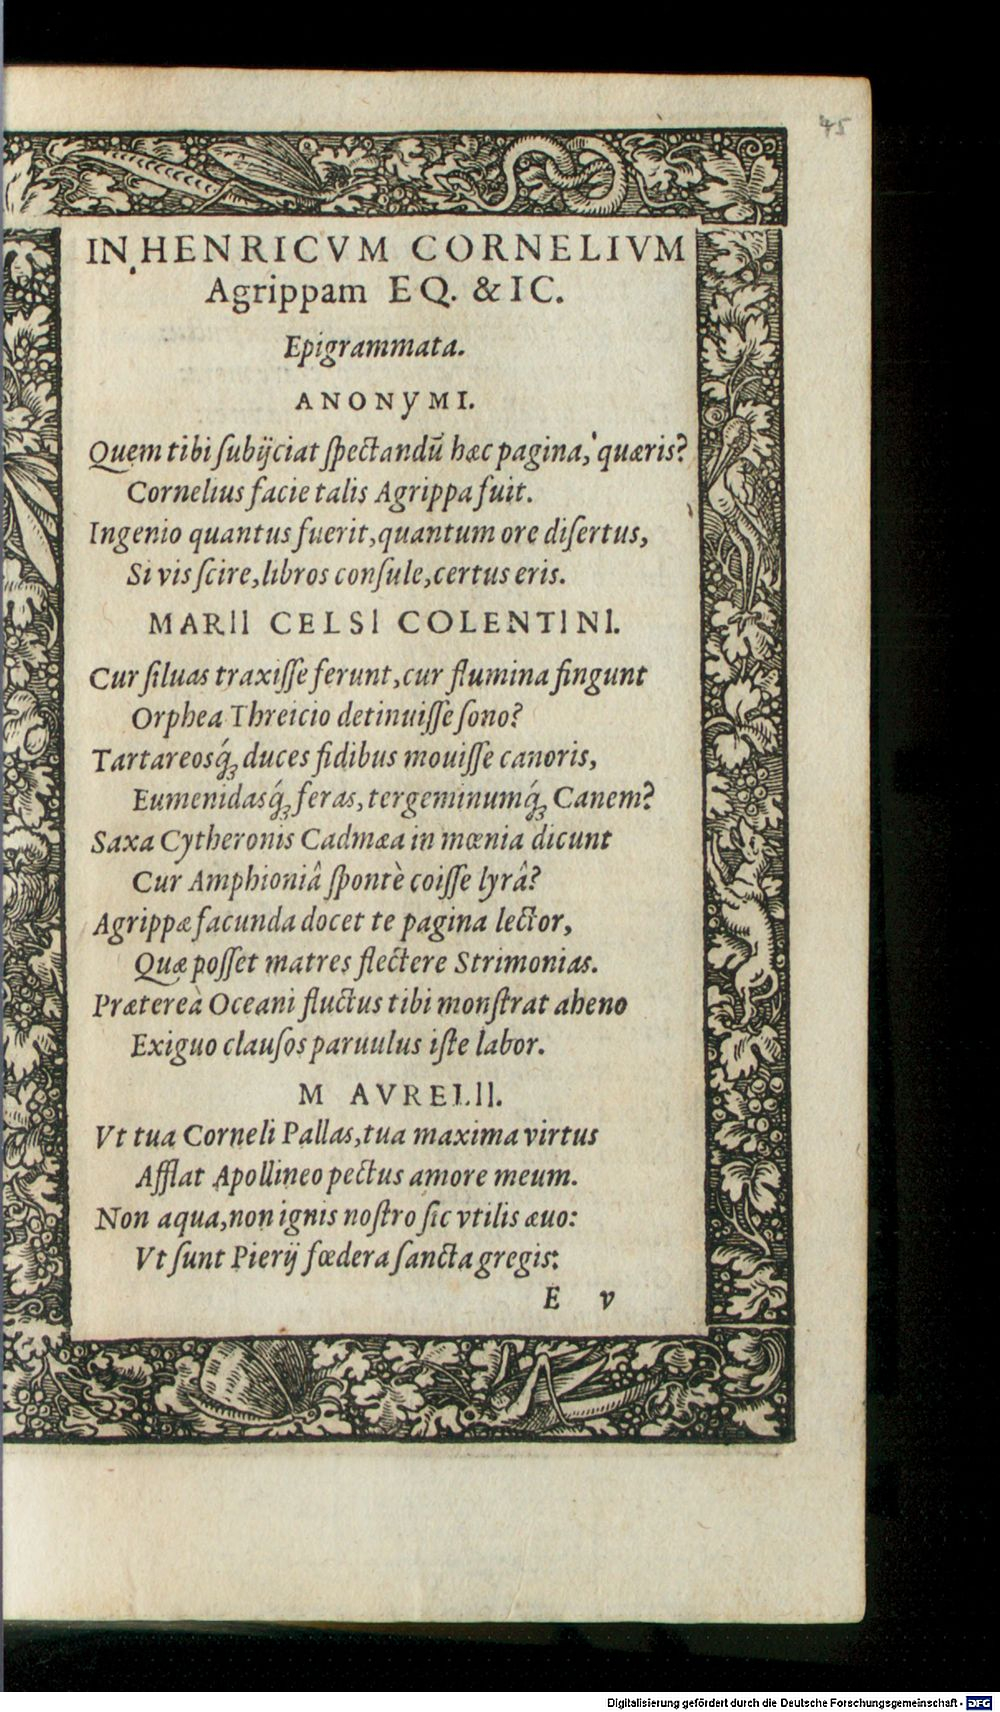 45
IN HENRICVM CORNELIVM
Agrippam EQ. & IC.
Epigrammata.
ANONyMI.
Quem tibi ſubijciat ſpectandū hæc pagina, quæris?
Cornelius facie talis Agrippa fuit.
Ingenio quantus fuerit, quantum ore diſertus,
Si vis ſcire, libros conſule, certus eris.
MARII CELSI COLENTINI.
Cur ſiluas traxiſſe ferunt, cur flumina fingunt
Orphea Threicio detinuiſſe ſono?
Tartareosq́ꝫ duces fidibus mouiſſe canoris,
Eumenidasq́ꝫ feras, tergeminumq́ꝫ Canem?
Saxa Cytheronis Cadmæa in mœnia dicunt
Cur Amphioniâ ſpontè coiſſe lyrâ?
Agrippæ facunda docet te pagina lector,
Quæ poſſet matres flectere Strimonias.
Prætereà Oceani fluctus tibi monſtrat aheno
Exiguo clauſos paruulus iſte labor.
M AVRELII.
Vt tua Corneli Pallas, tua maxima virtus
Afflat Apollineo pectus amore meum.
Non aqua, non ignis noſtro ſic vtilis æuo:
Vt ſunt Pierij fœdera ſancta gregis:
E v
Digitalisierung gefördert durch die Deutsche Forschungsgemeinschaft - DFG